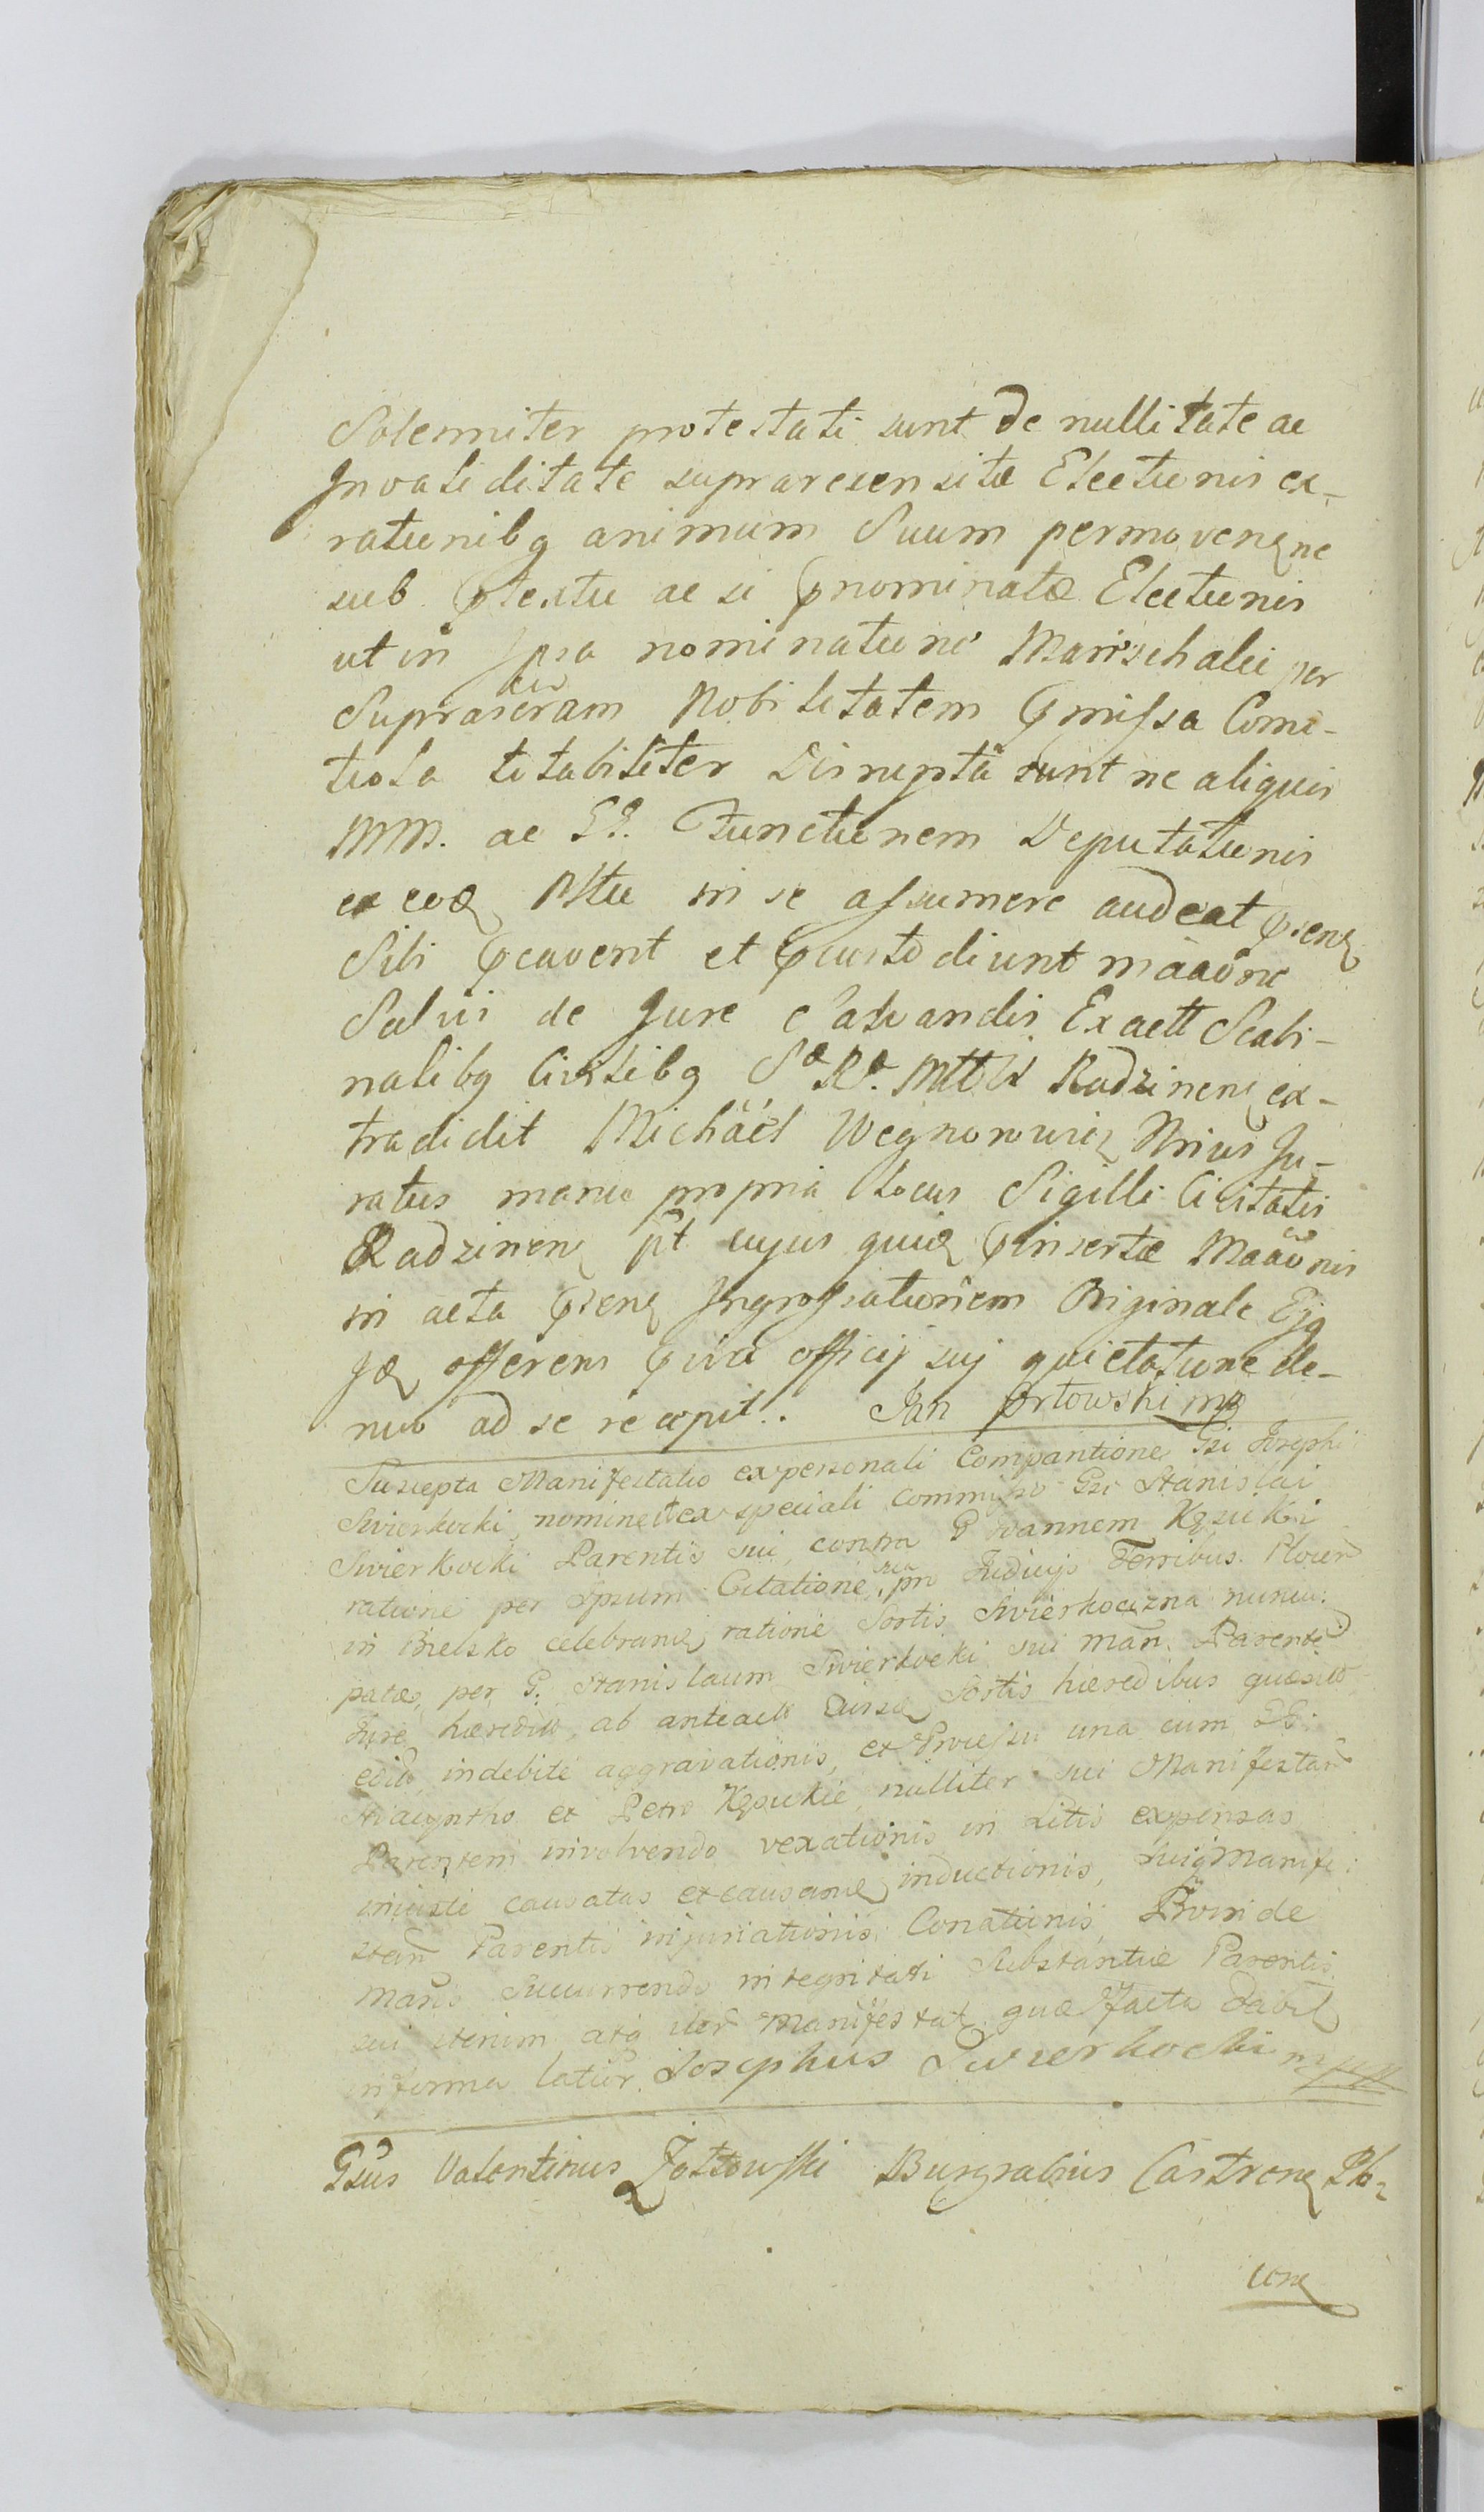 Solenniter protestati sunt de nullitate ac
Invaliditate suprarecensitæ Electionis ex-
rationibq animum Suum permoven ne
sub ptextu ac si pnominatæ Electionis
ut in Ipsa nominatione Marischalci per
Suprascram Nobilitatem pmissa Comi-
tiola totabiliter Disrupta sunt ne aliquis
MM. ac GG. Functionem Deputationis
ex eoq Pltu in se assumere audeat psen
Sibi pcavent et pcustodiunt maaône
Salvis de Jure Salvandis Ex actt Scabi-
nalibq Civilibq Sæ Ræ Mttis Radzinen ex-
tradidit Michäel Wegnonowicz Nrius Ju-
ratus manu propria Locus Sigilli Civitatis
Radzinen pt cujus quiq pinsertæ Maaônis
in acta psen Ingrossationem Originale Ejq
Iq offerens pvia officij sui quietatione de-
nuo ad se recepit. Jan Orłowski mp
Suscepta Manifestatio ex personali Comparitione Gsi Josephi
Swierkocki nomine et ex speciali Commisso Gsi Stanislai
Swierkocki Parentis sui, contra G Joannem Kęsicki
ratione per Ipsum Citatione, pro Judicijs Terribus Plocen
in Bielsko celebran ratione Sortis Swierkocizna nuncu:
patæ, per G. Stanislaum Swierkocki sui man. Parente
Jure hæredit, ab anteact Sortis hæredibus quæsito
indebite aggravationis, et Processu una cum GG:
Hiacyntho et Petro Kęsickie nulliter sui Manifestan
Parentem involvendo vexationis in Litis expensas
injuste causatas et causan inductionis, Manife:
stan Parentis injuriationis Conationis Proinde
Mans Succurrendo integritati Substantiæ Parentis
sui iterum atq iter Manifestat quæ Facta
in forma latior. Josephus Swierkocki mpp
Gsus Valentinus Zółtowski Burgrabius Castren Plo-
cen